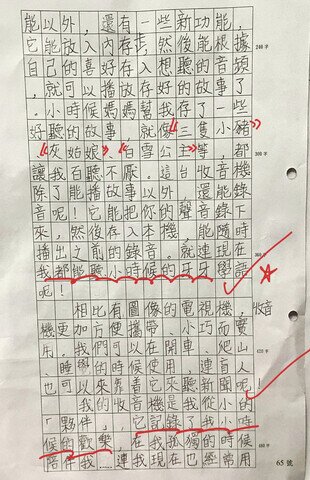 能以外，還有一些新功能，
它能放入內存卡，然後能根據
自己的喜好存入想聽的音頻
，就可以播放存好的故事了
。小時候媽媽幫我存了一些
好聽的故事，就像《三隻小豬》
、《灰姑娘》、《白雪公主》等，都
讓我百聽不厭。這台收音機
除了能播故事以外，還能錄
音呢！它能把你的聲音錄下
來，然後存入本機，能隨時
播出之前的錄音。就連現在
我都能聽小時候的牙牙學語
呢！
相比有圖像的電視機，收音
機更加方便攜帶、小巧而實
用。我們可以在開車、爬山
、睡覺的時候使用，連盲人
也可以來靠著它來聽新聞呢！
我的收音機是我從小的
「夥伴」，它記錄了我小時
候的歡樂，在我孤獨的時候
陪伴我……連我現在也經常用
240字
300字
360字
420字
480字
65號